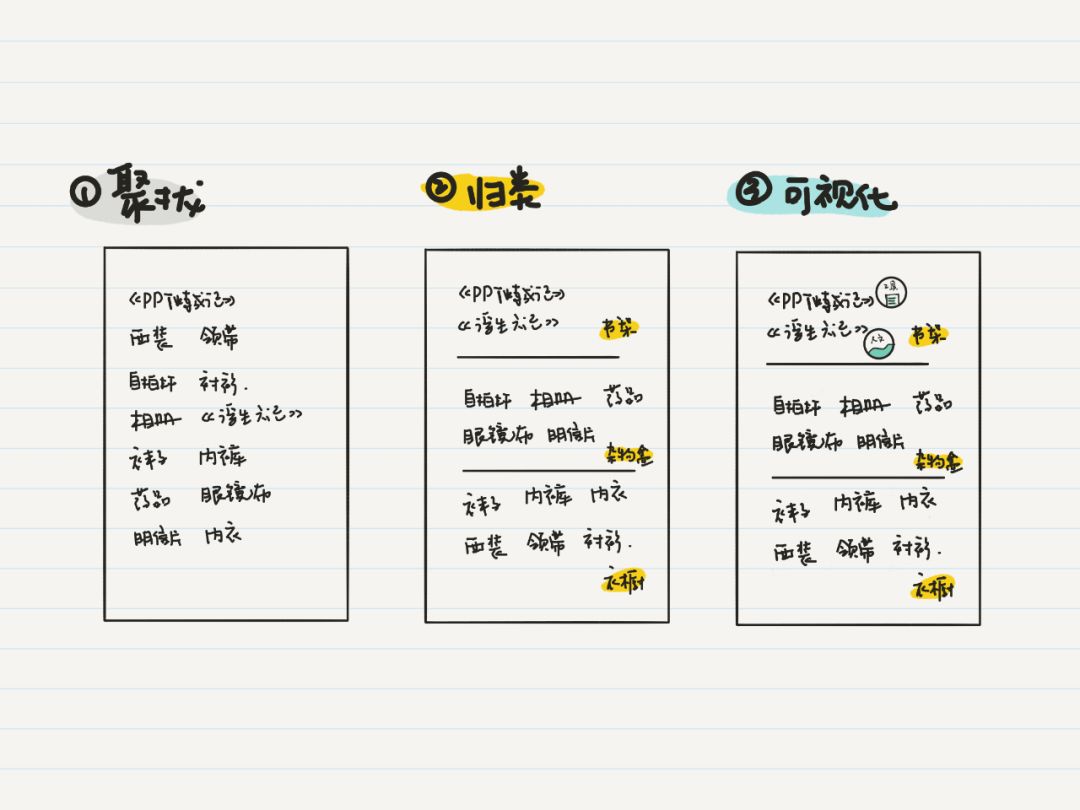 ① 聚拢
② 归类
③ 可视化
《PPT精成记》
西装 领带
自拍杆 衬衫.
相册 《浮生六记》
袜子 内裤
药品 眼镜布
明信片 内衣
《PPT精成记》
《浮生六记》 书架
自拍杆 相册 药品
眼镜布 明信片
杂物盒
袜子 内裤 内衣
西装 领带 衬衫.
衣橱
《PPT精成记》 工具
《浮生六记》 人文 书架
自拍杆 相册 药品
眼镜布 明信片
杂物盒
袜子 内裤 内衣
西装 领带 衬衫.
衣橱